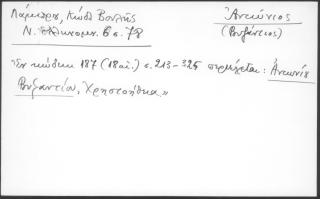 Λάμπρου, Κώδ. Βουλῆς
Ν. Ἑλληνομν. 6 σ. 78
Ἀντώνιος
(Βυζάντιος)
Ἐν κώδικι 187 (18 αἰ.) σ. 213-325 περιέχεται: Ἀντωνίου
Βυζαντίου, Χρηστοήθεια.»